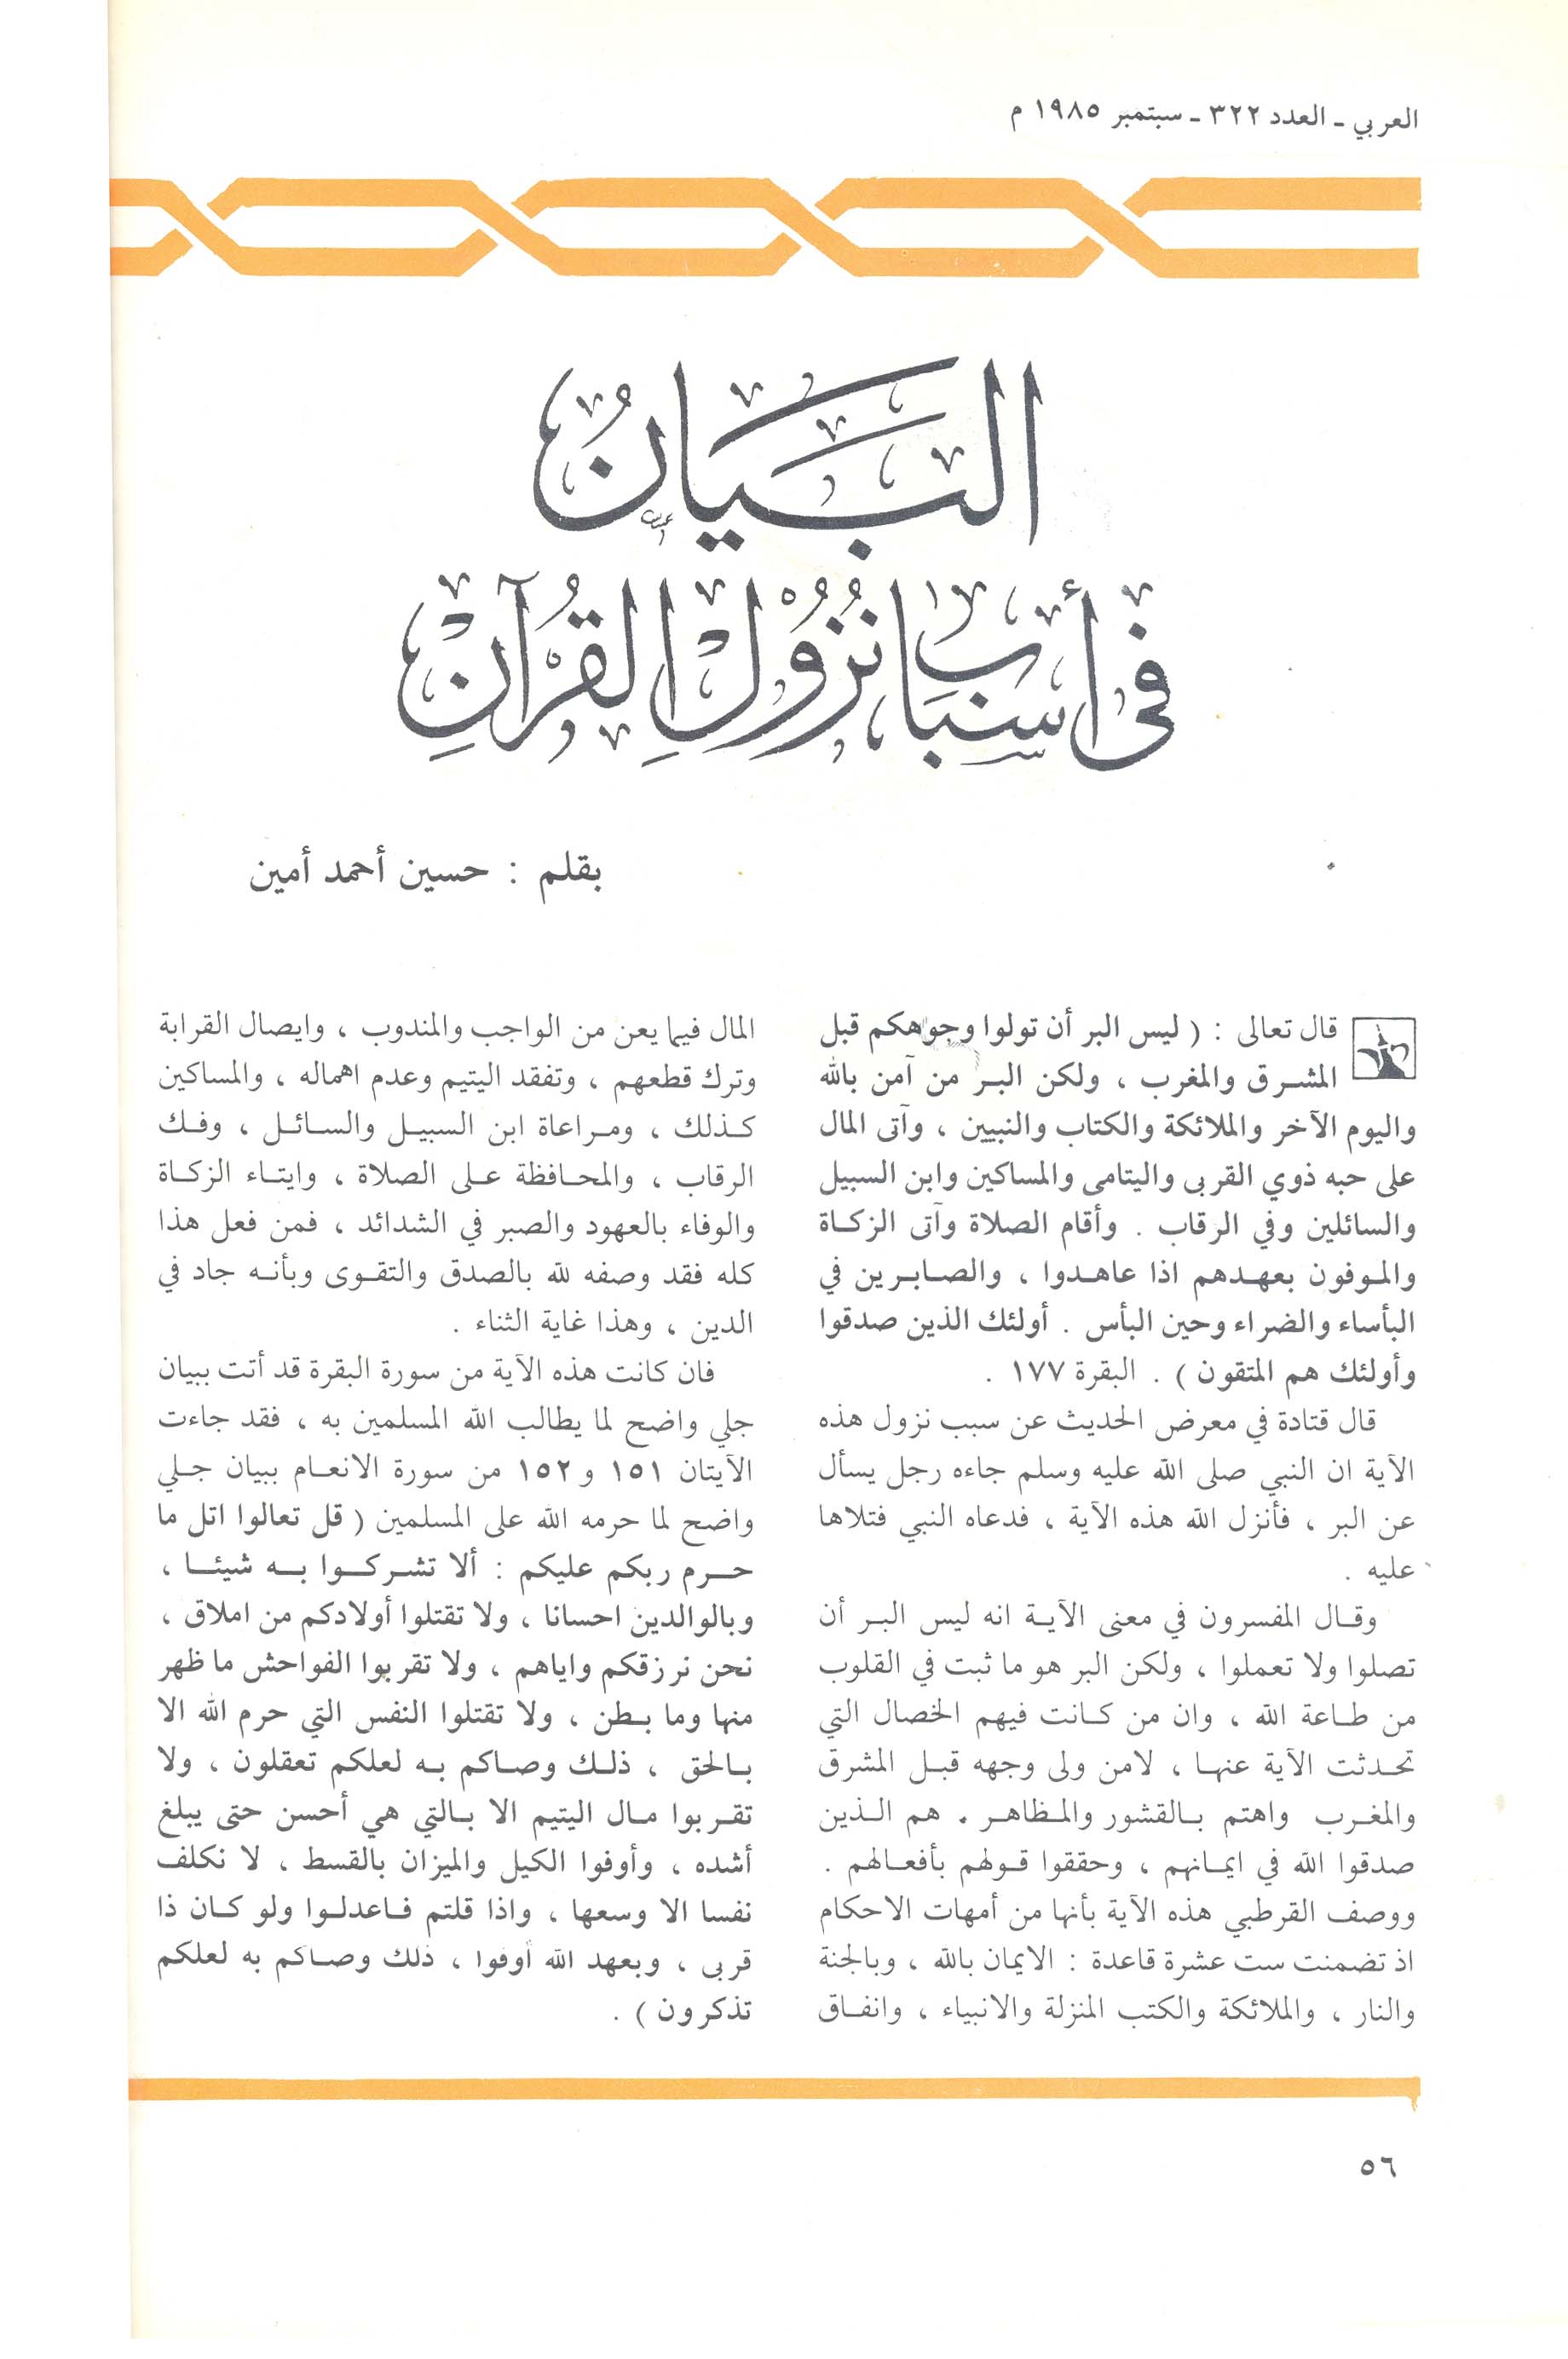 العربي ـ العدد ٣٢٢ ـ سبتمبر ١٩٨٥ م
البَيَانُ
في أسبَابِ نُزُوْلِ القُرْآنِ
بقلم : حسين أحمد أمين
قال تعالى : ( ليس البر أن تولوا وجوهكم قبل
المشرق والمغرب ، ولكن البر من آمن بالله
واليوم الآخر والملائكة والكتاب والنبيين ، وآتى المال
على حبه ذوي القربى واليتامى والمساكين وابن السبيل
والسائلين وفي الرقاب . وأقام الصلاة وآتى الزكاة
والموفون بعهدهم اذا عاهدوا ، والصابرين في
البأساء والضراء وحين البأس . أولئك الذين صدقوا
وأولئك هم المتقون ) . البقرة ١٧٧ .
قال قتادة في معرض الحديث عن سبب نزول هذه
الآية ان النبي صلى الله عليه وسلم جاءه رجل يسأل
عن البر ، فأنزل الله هذه الآية ، فدعاه النبي فتلاها
عليه .
وقال المفسرون في معنى الآية انه ليس البر أن
تصلوا ولا تعملوا ، ولكن البر هو ما ثبت في القلوب
من طاعة الله ، وان من كانت فيهم الخصال التي
تحدثت الآية عنها ، لامن ولى وجهه قبل المشرق
والمغرب واهتم بالقشور والمظاهر . هم الذين
صدقوا الله في ايمانهم ، وحققوا قولهم بأفعالهم .
ووصف القرطبي هذه الآية بأنها من أمهات الاحكام
اذ تضمنت ست عشرة قاعدة : الايمان بالله ، وبالجنة
والنار ، والملائكة والكتب المنزلة والانبياء ، وانفاق
المال فيما يعن من الواجب والمندوب ، وايصال القرابة
وترك قطعهم ، وتفقد اليتيم وعدم اهماله ، والمساكين
كذلك ، ومراعاة ابن السبيل والسائل ، وفك
الرقاب ، والمحافظة على الصلاة ، وايتاء الزكاة
والوفاء بالعهود والصبر في الشدائد ، فمن فعل هذا
كله فقد وصفه لله بالصدق والتقوى وبأنه جاد في
الدين ، وهذا غاية الثناء .
فان كانت هذه الآية من سورة البقرة قد أتت ببيان
جلي واضح لما يطالب الله المسلمين به ، فقد جاءت
الآيتان ١٥١ و ١٥٢ من سورة الانعام ببيان جلي
واضح لما حرمه الله على المسلمين ( قل تعالوا اتل ما
حرم ربكم عليكم : ألا تشركوا به شيئا ،
وبالوالدين احسانا ، ولا تقتلوا أولادكم من املاق ،
نحن نرزقكم واياهم ، ولا تقربوا الفواحش ما ظهر
منها وما بطن ، ولا تقتلوا النفس التي حرم الله الا
بالحق ، ذلك وصاكم به لعلكم تعقلون ، ولا
تقربوا مال اليتيم الا بالتي هي أحسن حتى يبلغ
أشده ، وأوفوا الكيل والميزان بالقسط ، لا نكلف
نفسا الا وسعها ، واذا قلتم فاعدلوا ولو كان ذا
قربى ، وبعهد الله أوفوا ، ذلك وصاكم به لعلكم
تذكرون ) .
٥٦